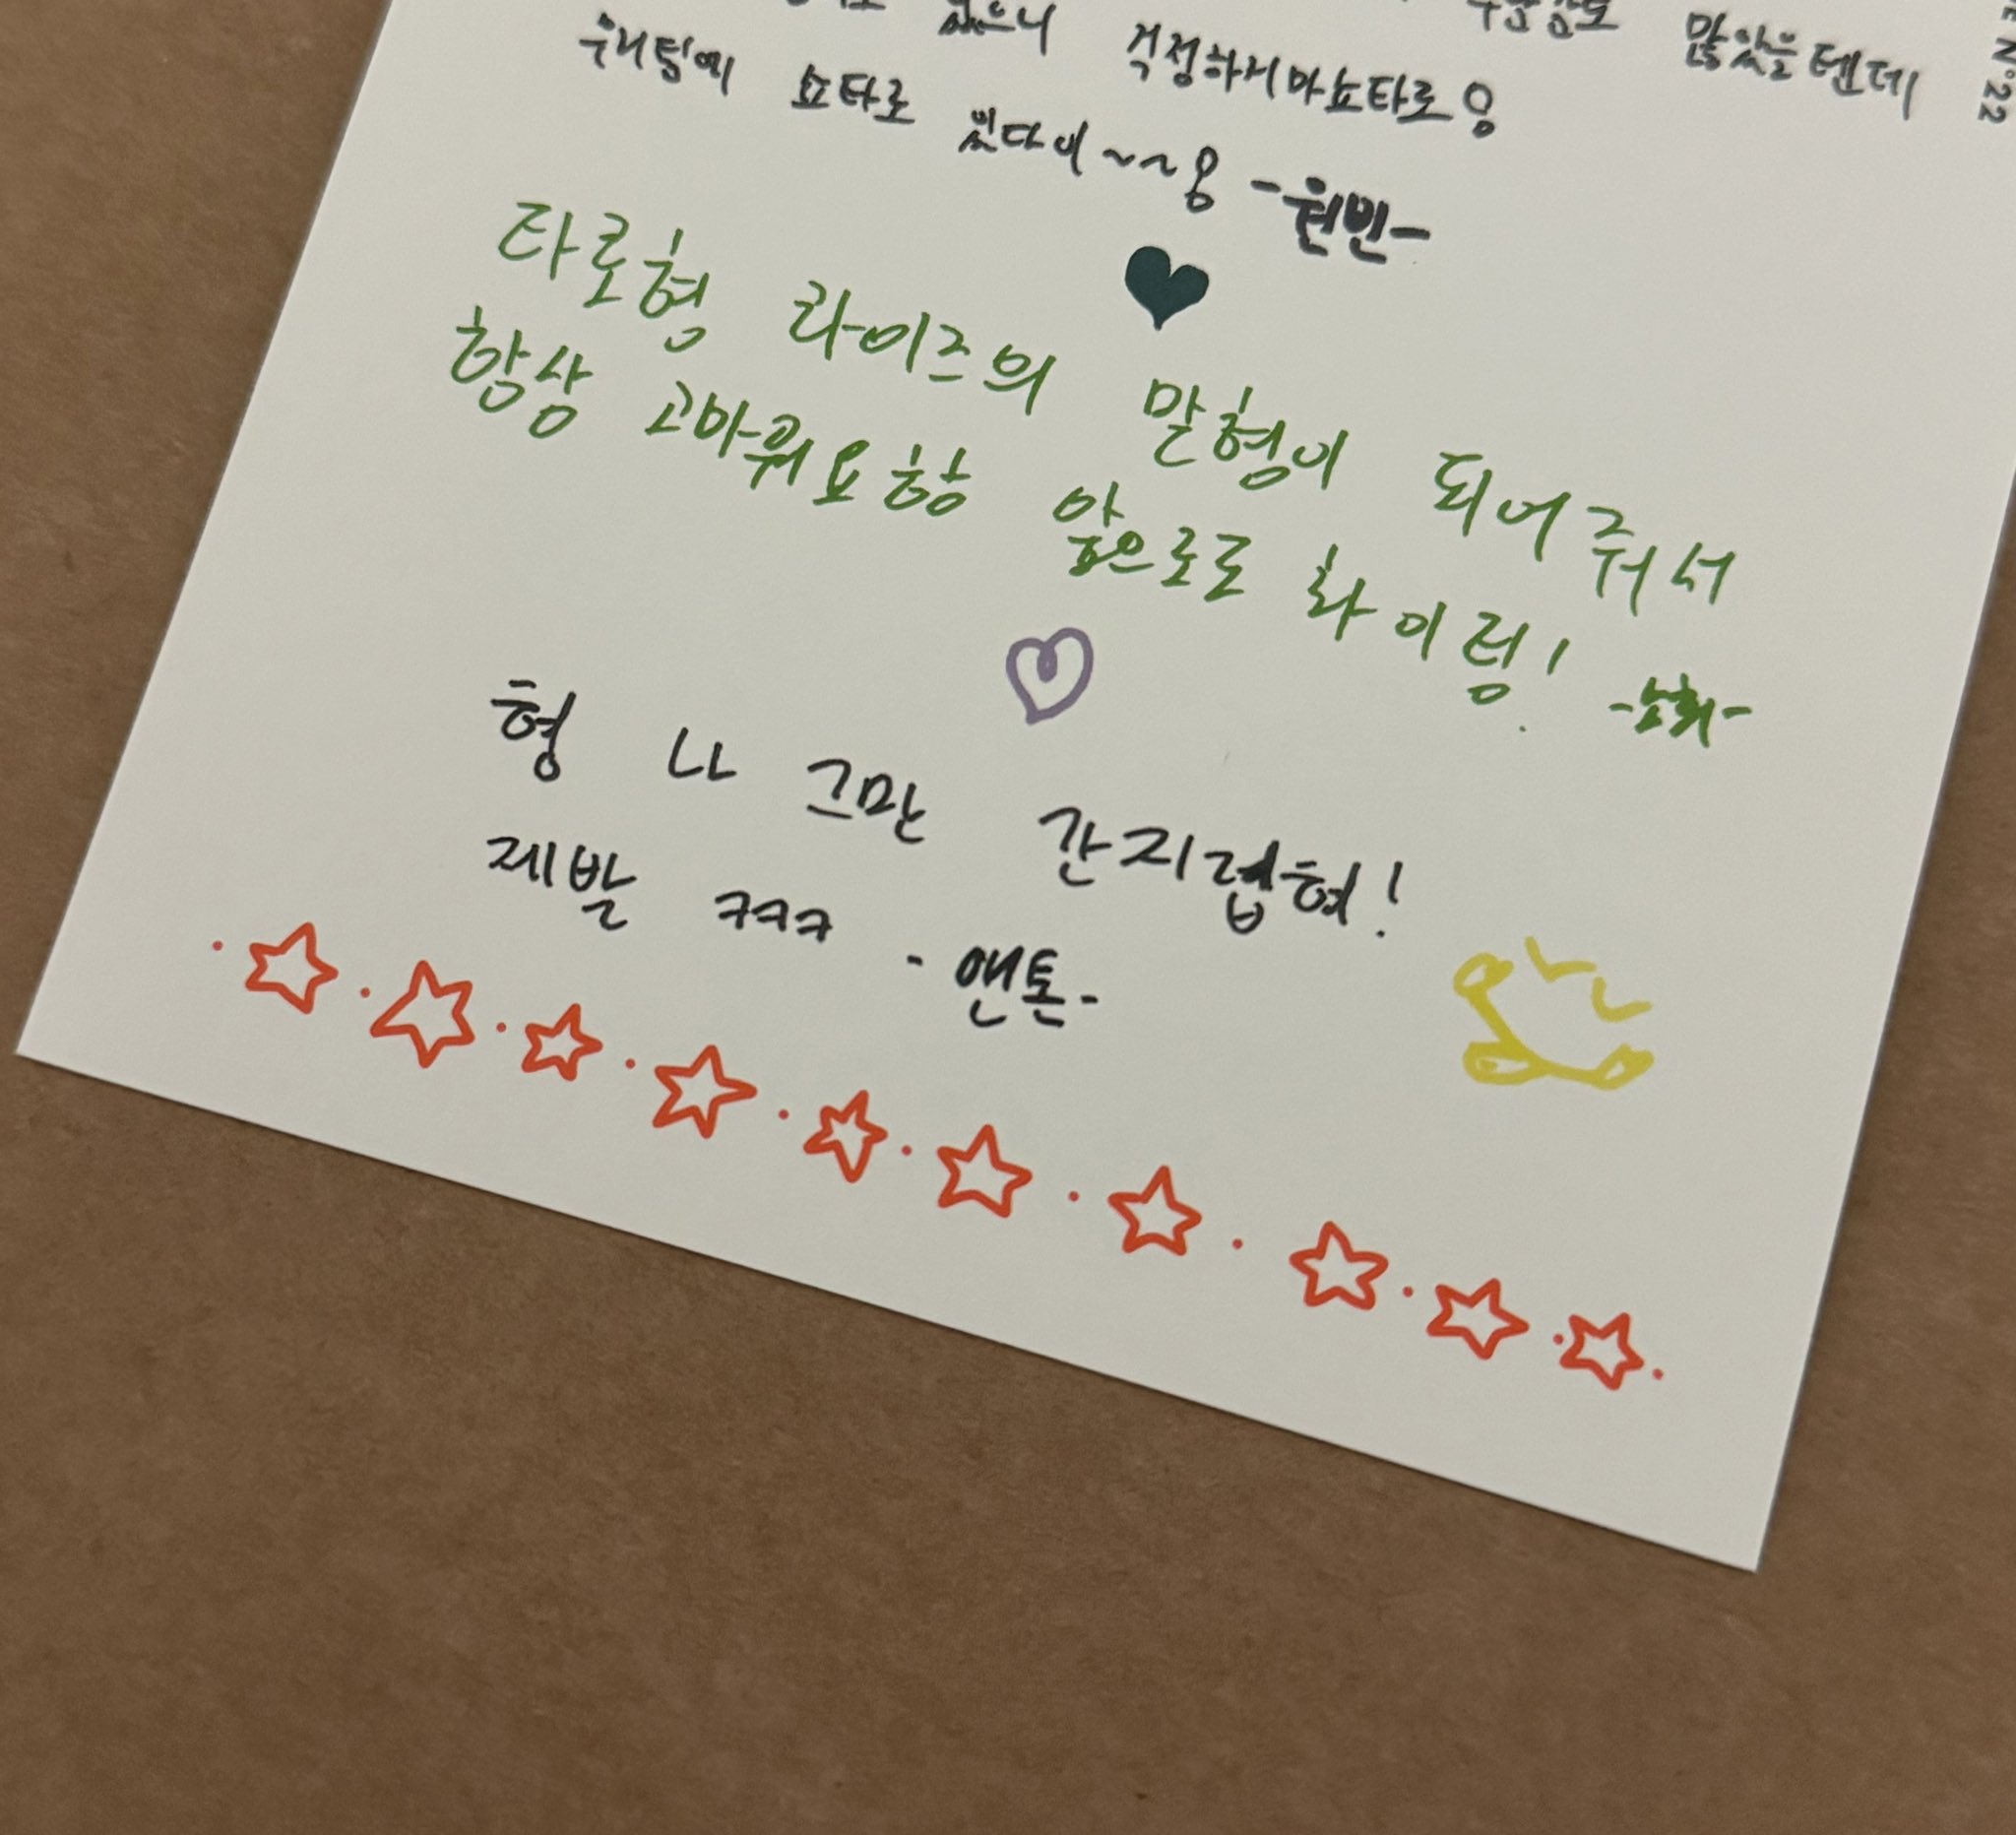 있으니 걱정하지마쇼타로용 많았을텐데
우리팀에 쇼타로 있다이~~용 -원빈-
타로형 라이즈의 맏형이 되어줘서
항상 고마워요항 앞으로도 화이링!
형 나 그만 간지럽혀!
제발 ㅋㅋㅋ -앤톤-